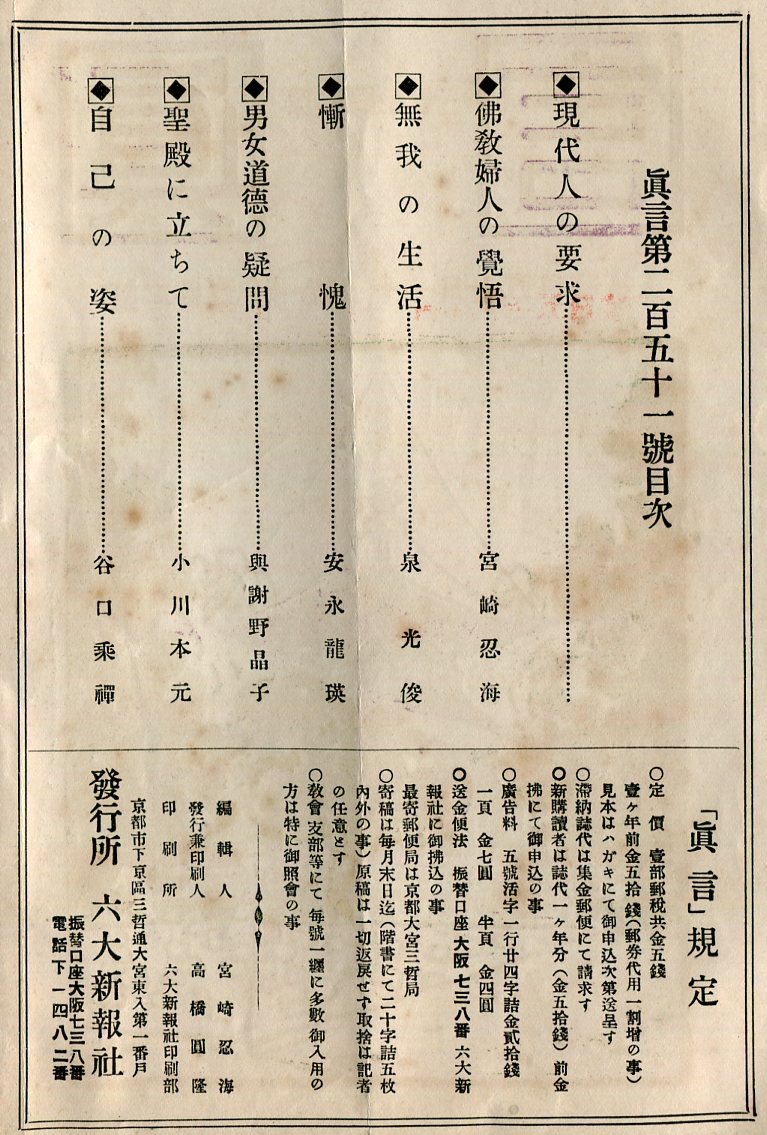 眞言第二百五十一號目次
現代人の要求
佛敎婦人の覺悟 宮崎忍海
無我の生活 泉光俊
慚愧 安永龍瑛
男女道德の疑問 與謝野晶子
聖殿に立ちて 小川本元
自己の姿 谷口乘禪
「眞言」規定
○定價 壹部郵稅共金五錢
壹ヶ年前金五拾錢(郵劵代用一割增の事)
見本はハガキにて御申込次第送呈す
○滯納誌代は集金郵便にて請求す
○新購讀者は誌代一ヶ年分(金五拾錢)前金
拂にて御申込の事
○廣告料 五號活字一行廿四字詰金貳拾錢
一頁 金七圓 半頁 金四圓
○送金便法 振替口座大阪七三八番 六大新
報社に御拂込の事
最寄郵便局は京都大宮三哲局
○寄稿は每月末日迄(階書にて二十字詰五枚
內外の事)原稿は一切返戾せず取捨は記者
の任意とす
○敎會支部等にて每號一纒に多數御入用の
方は特に御照會の事
編輯人 宮崎忍海
發行兼印刷人 高橋圓隆
印刷所 六大新報社印刷部
京都市下京區三哲通大宮東入第一番戶
發行所 六大新報社
振替口座大阪七三八番
電話下一四八二番